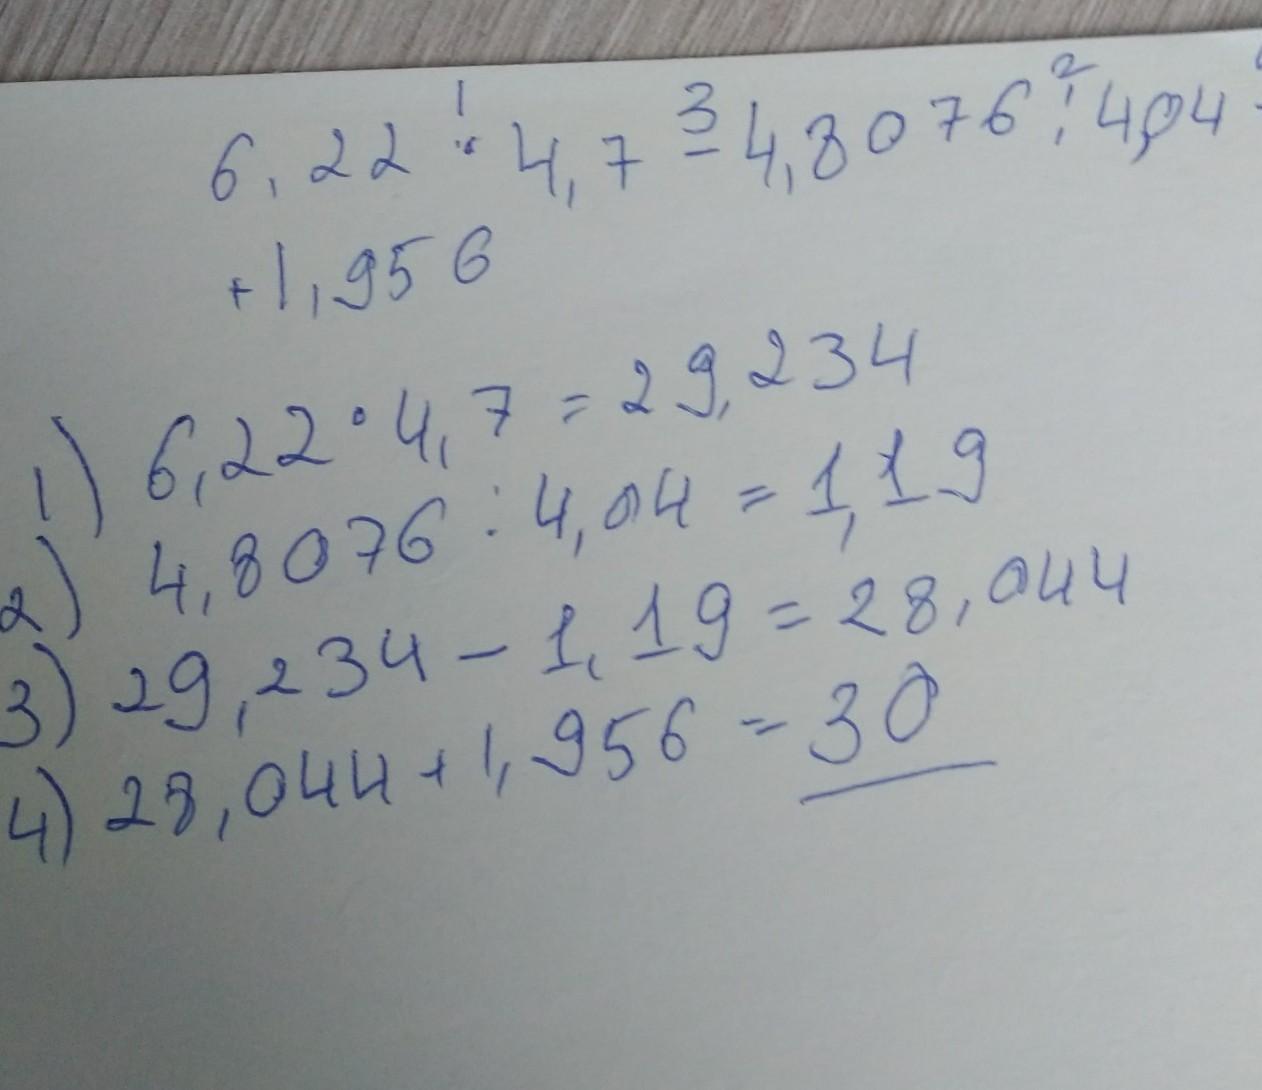 6,22 · 4,7 - 4,8076 : 4,04
+1,956
1) 6,22 · 4,7 = 29,234
2) 4,8076 : 4,04 = 1,19
3) 29,234 - 1,19 = 28,044
4) 28,044 + 1,956 = 30